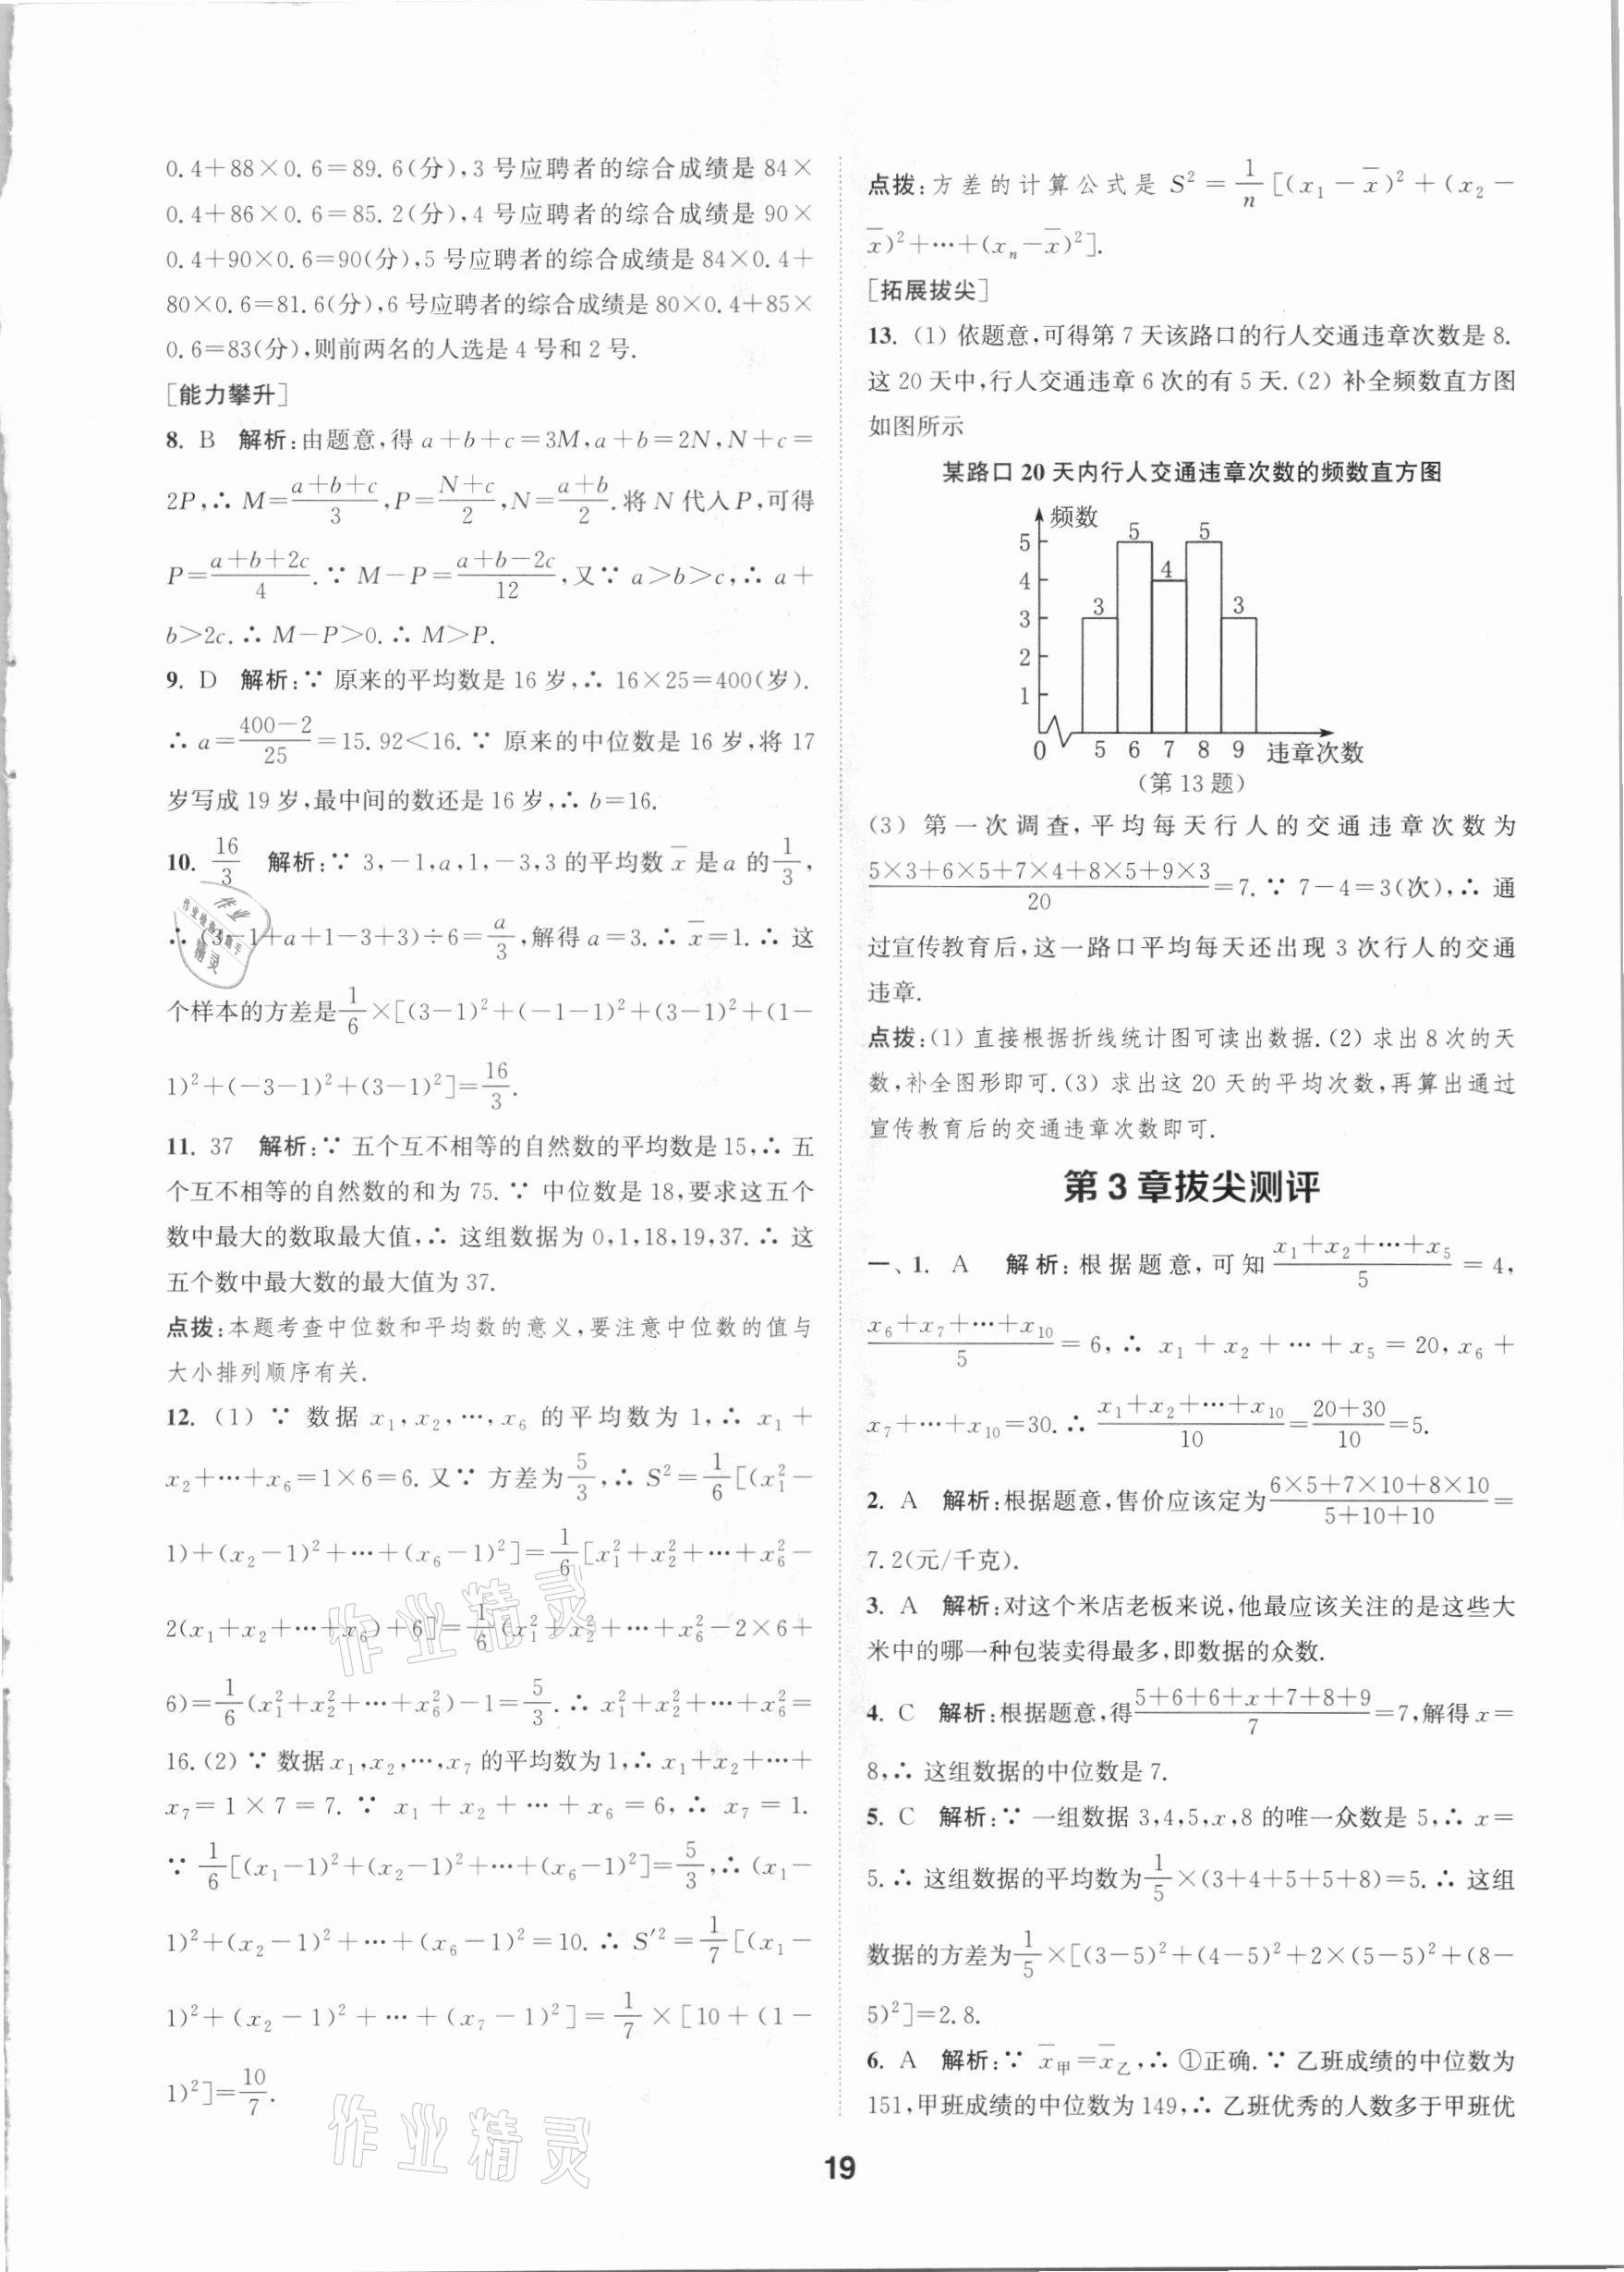 0.4+88×0.6=89.6(分),3号应聘者的综合成绩是84×
0.4+86×0.6=85.2(分),4号应聘者的综合成绩是90×
0.4+90×0.6=90(分),5号应聘者的综合成绩是84×0.4+
80×0.6=81.6(分),6号应聘者的综合成绩是80×0.4+85×
0.6=83(分),则前两名的人选是4号和2号.
[能力攀升]
8. B 解析:由题意,得a+b+c=3M,a+b=2N,N+c=
2P,∴ M=(a+b+c)/3,P=(N+c)/2,N=(a+b)/2.将N代入P,可得
P=(a+b+2c)/4.∵ M-P=(a+b-2c)/12,又∵ a>b>c,∴ a+
b>2c.∴ M-P>0.∴ M>P.
9. D 解析:∵ 原来的平均数是16岁,∴ 16×25=400(岁).
∴ a=(400-2)/25=15.92<16.∵ 原来的中位数是16岁,将17
岁写成19岁,最中间的数还是16岁,∴ b=16.
10. 16/3 解析:∵ 3,-1,a,1,-3,3的平均数x̄是a的1/3,
∴ (3-1+a+1-3+3)÷6=a/3,解得a=3.∴ x̄=1.∴ 这
个样本的方差是1/6×[(3-1)²+(-1-1)²+(3-1)²+(1-
1)²+(-3-1)²+(3-1)²]=16/3.
11. 37 解析:∵ 五个互不相等的自然数的平均数是15,∴ 五
个互不相等的自然数的和为75.∵ 中位数是18,要求这五个
数中最大的数取最大值,∴ 这组数据为0,1,18,19,37.∴ 这
五个数中最大数的最大值为37.
点拨:本题考查中位数和平均数的意义,要注意中位数的值与
大小排列顺序有关.
12. (1) ∵ 数据x₁,x₂,…,x₆的平均数为1,∴ x₁+
x₂+…+x₆=1×6=6.又∵ 方差为5/3,∴ S²=1/6[(x₁²-
1)+(x₂-1)²+…+(x₆-1)²]=1/6[x₁²+x₂²+…+x₆²-
2(x₁+x₂+…+x₆)+6]=1/6(x₁²+x₂²+…+x₆²-2×6+
6)=1/6(x₁²+x₂²+…+x₆²)-1=5/3.∴ x₁²+x₂²+…+x₆²=
16.(2) ∵ 数据x₁,x₂,…,x₇的平均数为1,∴ x₁+x₂+…+
x₇=1×7=7.∵ x₁+x₂+…+x₆=6,∴ x₇=1.
∵ 1/6[(x₁-1)²+(x₂-1)²+…+(x₆-1)²]=5/3,∴ (x₁-
1)²+(x₂-1)²+…+(x₆-1)²=10.∴ S′²=1/7[(x₁-
1)²+(x₂-1)²+…+(x₇-1)²]=1/7×[10+(1-
1)²]=10/7.
点拨:方差的计算公式是S²=1/n[(x₁-x̄)²+(x₂-
x̄)²+…+(xₙ-x̄)²].
[拓展拔尖]
13. (1) 依题意,可得第7天该路口的行人交通违章次数是8.
这20天中,行人交通违章6次的有5天.(2) 补全频数直方图
如图所示
某路口20天内行人交通违章次数的频数直方图
频数
5
4
3
2
1
3
5
4
5
3
0 5 6 7 8 9 违章次数
(第13题)
(3) 第一次调查,平均每天行人的交通违章次数为
(5×3+6×5+7×4+8×5+9×3)/20=7.∵ 7-4=3(次),∴ 通
过宣传教育后,这一路口平均每天还出现3次行人的交通
违章.
点拨:(1) 直接根据折线统计图可读出数据.(2) 求出8次的天
数,补全图形即可.(3) 求出这20天的平均次数,再算出通过
宣传教育后的交通违章次数即可.
第3章拔尖测评
一、1. A 解析:根据题意,可知(x₁+x₂+…+x₅)/5=4,
(x₆+x₇+…+x₁₀)/5=6,∴ x₁+x₂+…+x₅=20,x₆+
x₇+…+x₁₀=30.∴ (x₁+x₂+…+x₁₀)/10=(20+30)/10=5.
2. A 解析:根据题意,售价应该定为(6×5+7×10+8×10)/(5+10+10)=
7.2(元/千克).
3. A 解析:对这个米店老板来说,他最应该关注的是这些大
米中的哪一种包装卖得最多,即数据的众数.
4. C 解析:根据题意,得(5+6+6+x+7+8+9)/7=7,解得x=
8,∴ 这组数据的中位数是7.
5. C 解析:∵ 一组数据3,4,5,x,8的唯一众数是5,∴ x=
5.∴ 这组数据的平均数为1/5×(3+4+5+5+8)=5.∴ 这组
数据的方差为1/5×[(3-5)²+(4-5)²+2×(5-5)²+(8-
5)²]=2.8.
6. A 解析:∵ x̄甲=x̄乙,∴ ①正确.∵ 乙班成绩的中位数为
151,甲班成绩的中位数为149,∴ 乙班优秀的人数多于甲班优
19
作业精灵
作业精灵
作业
精灵